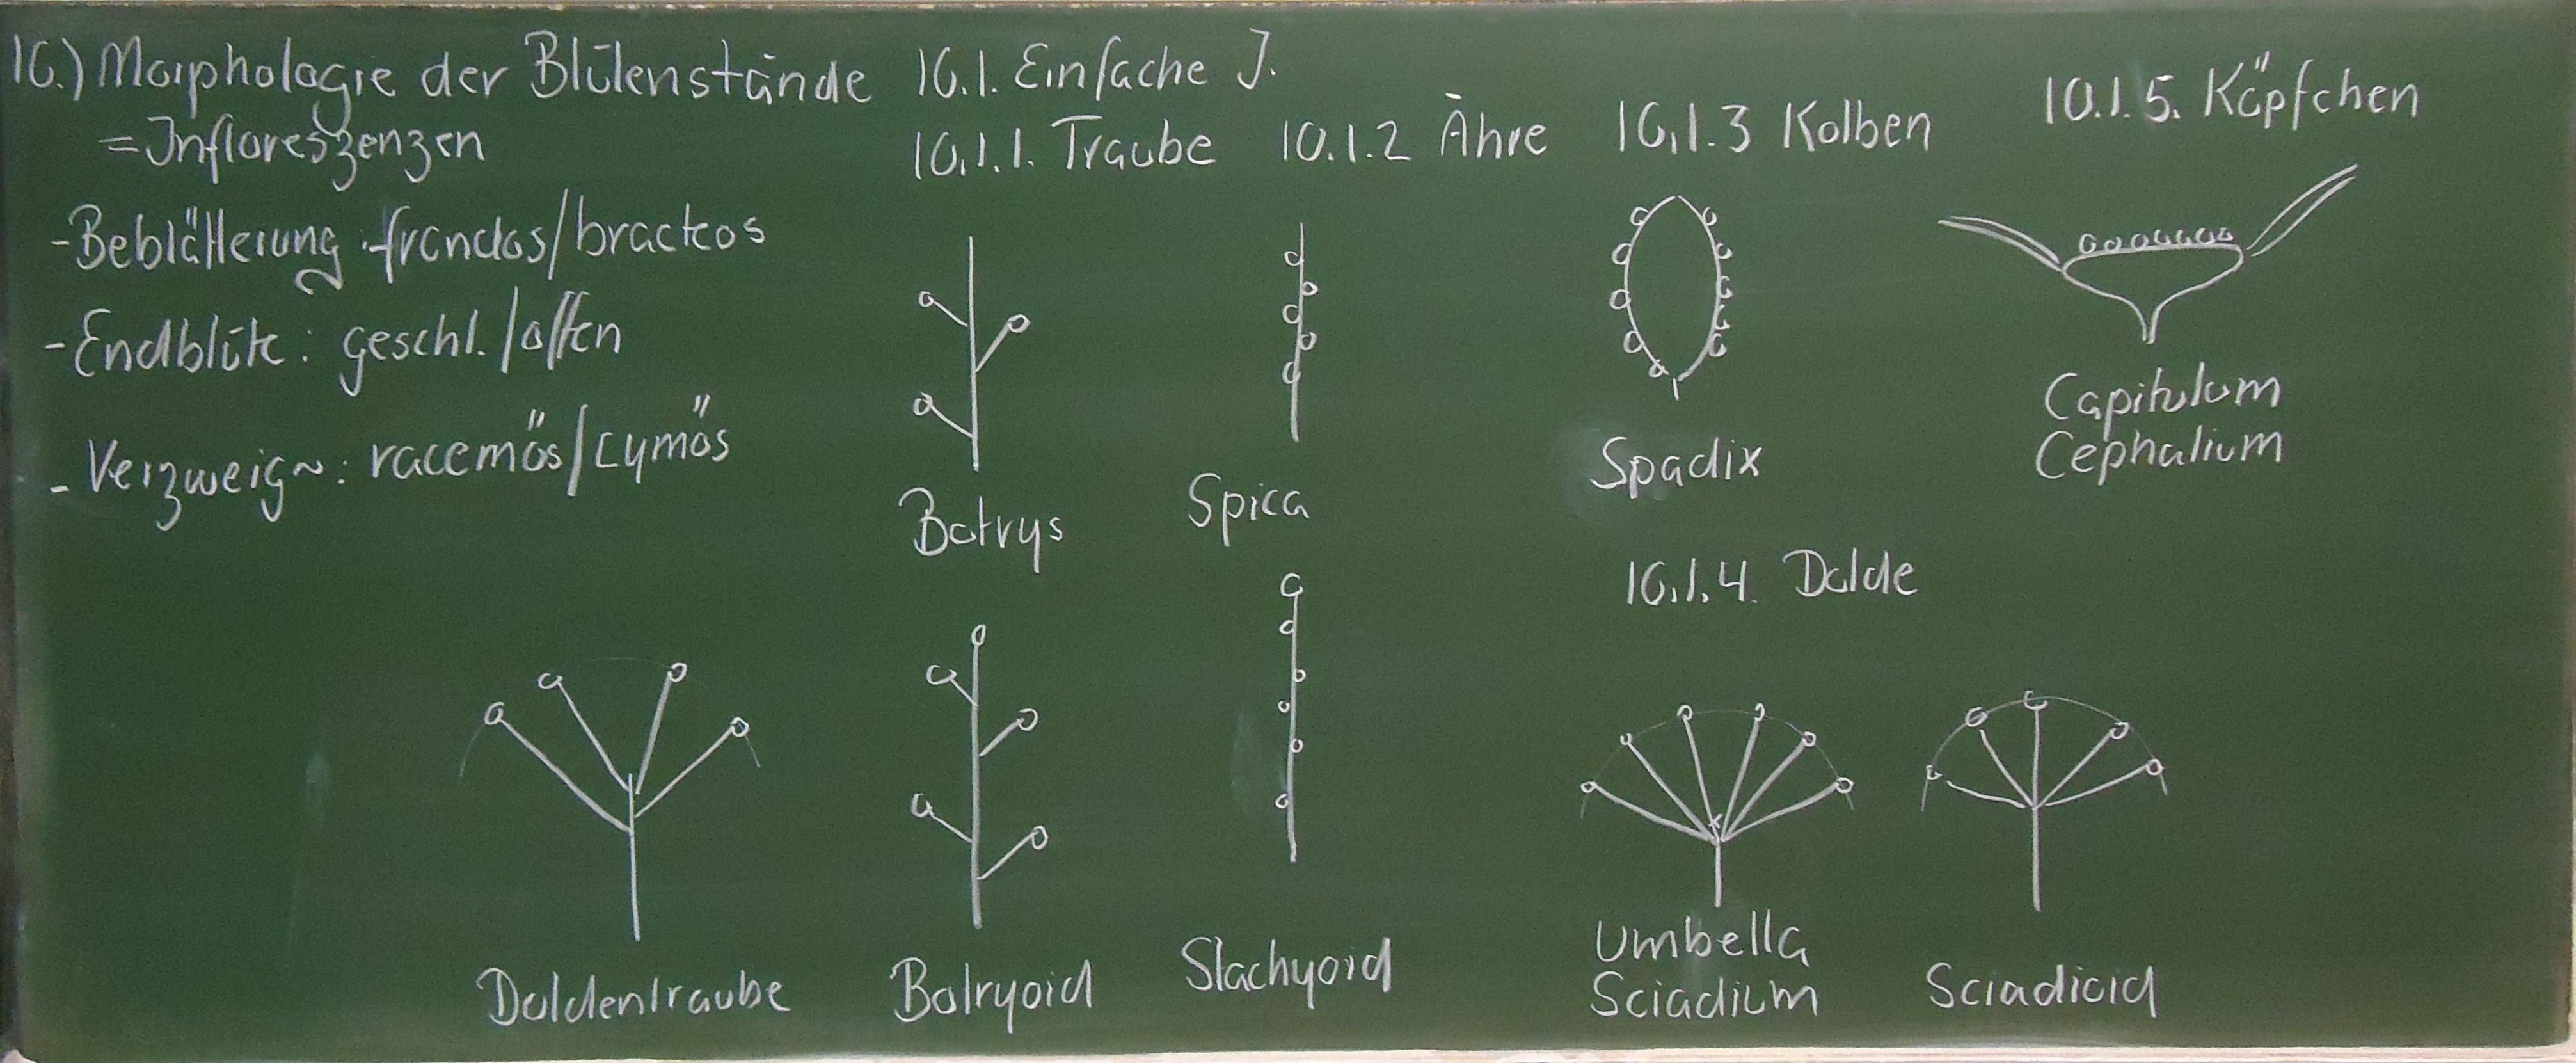 10.) Morphologie der Blütenstände
= Infloreszenzen
- Beblätterung: frondos/bracteos
- Endblüte: geschl./offen
- Verzweig~: racemös/cymös
10.1. Einfache I.
10.1.1. Traube
Botrys
Botryoid
Doldentraube
10.1.2 Ähre
Spica
Stachyoid
10.1.3 Kolben
Spadix
10.1.4. Dolde
Umbella
Sciadium
Sciadioid
10.1.5. Köpfchen
Capitulum
Cephalium